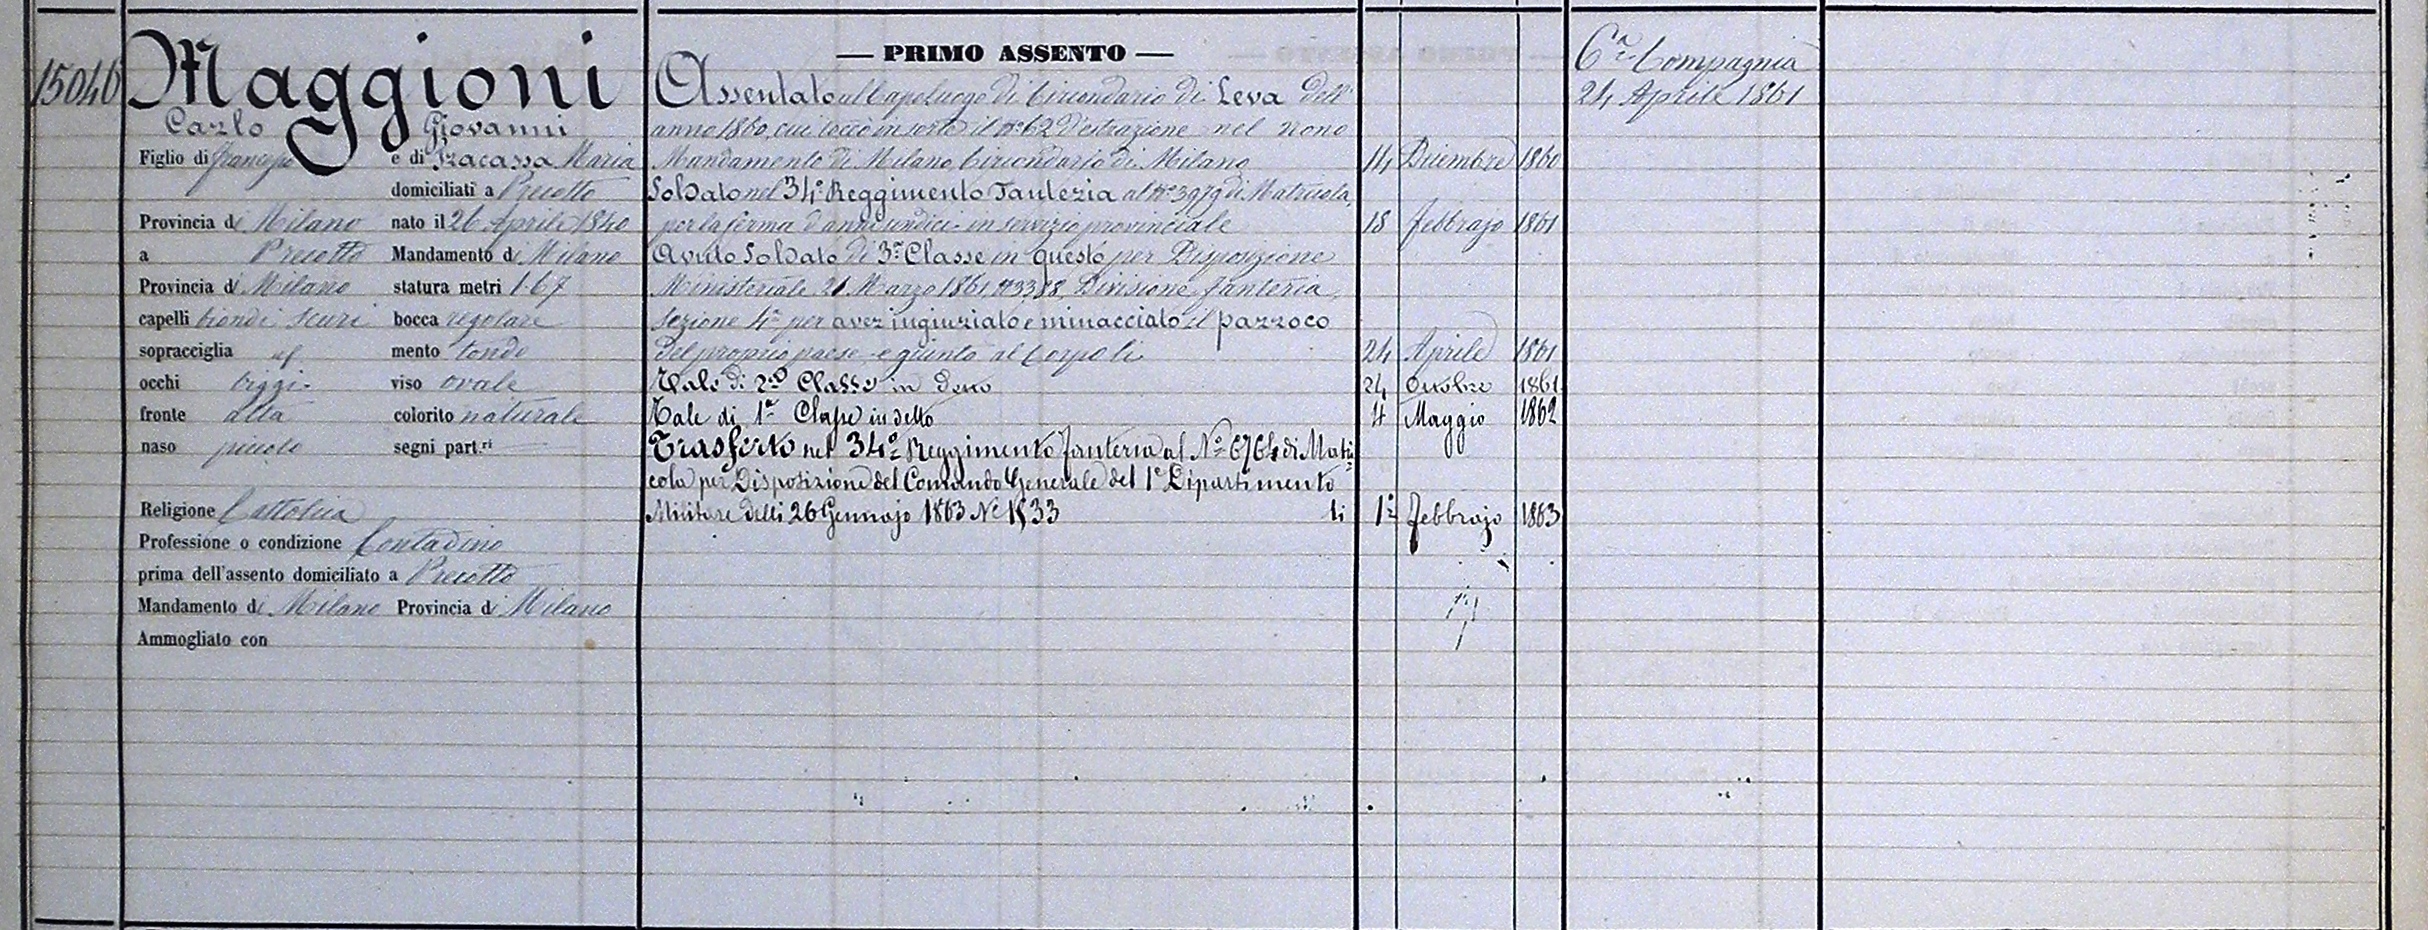 15046
Maggioni
Carlo Giovanni
Figlio di Francesco e di Fracassa Maria
domiciliati a Precotto
Provincia di Milano nato il 26 Aprile 1840
a Precotto Mandamento di Milano
Provincia di Milano statura metri 1.67
capelli biondi scuri bocca regolare
sopracciglia mento tondo
occhi biggi viso ovale
fronte alta colorito naturale
naso piccolo segni part.ri
Religione Cattolica
Professione o condizione Contadino
prima dell'assento domiciliato a Precotto
Mandamento di Milano Provincia di Milano
Ammogliato con
— PRIMO ASSENTO —
Assentato al Capoluogo di Circondario di Leva dell'
anno 1860, cui toccò in sorte il N.o 62 d'estrazione nel nono
Mandamento di Milano, Circondario di Milano 14 Dicembre 1860
Soldato nel 34.o Reggimento Fanteria al N.o 3979 di Matricola,
per la ferma d'anni undici in servizio provinciale 18 febbrajo 1861
Avuto Soldato di 3.a Classe in questo per Disposizione
Ministeriale 21 Marzo 1861, N.o 3388, Divisione Fanteria,
Sezione 4.a per aver ingiuriato e minacciato il parroco
del proprio paese e giunto al Corpo li 24 Aprile 1861
Tale di 2.a Classe in detto 24 Ottobre 1861
Tale di 1.a Classe in detto 4 Maggio 1862
Trasferto nel 34.o Reggimento fanteria al N.o 6764 di Matri-
cola per Disposizione del Comando Generale del 1.o Dipartimento
Militare delli 26 Gennajo 1863 N.o 1533 li 1.o febbrajo 1863
6.a Compagnia
24 Aprile 1861